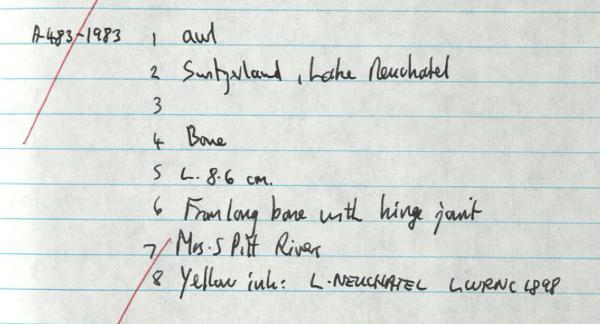 A.483-1983 1 awl
2 Switzerland, Lake Neuchatel
3
4 Bone
5 L. 8.6 cm.
6 From long bone with hinge joint
7 Mrs. S Pitt Rivers
8 Yellow ink: L. NEUCHATEL 1898